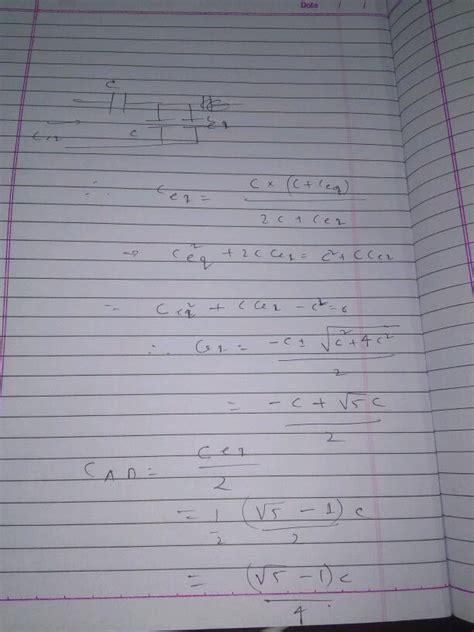 Date / /
C
C
Ceq
Ceq
∴ Ceq = C × (C + Ceq) / 2C + Ceq
→ Ceq² + 2C Ceq = C² + C Ceq
= Ceq² + C Ceq - C² = 0
∴ Ceq = -C ± √C² + 4C² / 2
= -C + √5 C / 2
C AD = Ceq / 2
= 1/2 (√5 - 1) C / 2
= (√5 - 1) C / 4